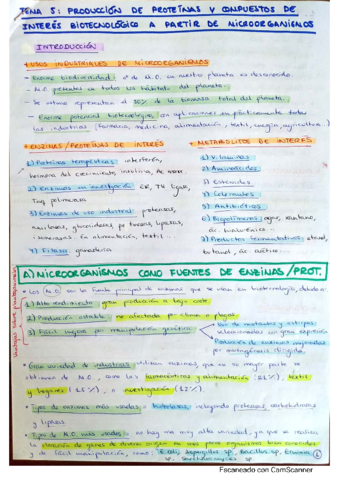 TEMA 5: PRODUCCIÓN DE PROTEÍNAS Y COMPUESTOS DE
INTERÉS BIOTECNOLÓGICO A PARTIR DE MICROORGANISMOS
INTRODUCCIÓN
USOS INDUSTRIALES DE MICROORGANISMOS
- Enorme biodiversidad: nº de M.O. en nuestro planeta es desconocido.
- M.O. presentes en todos los hábitats del planeta.
- Se estima representan el 30% de la biomasa total del planeta.
- Enorme potencial biotecnológico, con aplicaciones en prácticamente todas
las industrias (farmacia, medicina, alimentación, textil, energía, agricultura...)
ENZIMAS/PROTEÍNAS DE INTERÉS
METABOLITOS DE INTERÉS
1) Proteínas terapéuticas: interferón,
hormona del crecimiento, insulina, Ac
2) Enzimas en investigación: ER, T4 ligasa,
Taq polimerasa
3) Enzimas de uso industrial: proteasas,
amilasas, glucosidasas, pectinasas, lipasas,
en alimentación, textil...
4) Fitasa: ganadería
1) Vitaminas
2) Aminoácidos
3) Esteroides
4) Colorantes
5) Antibióticos
6) Biopolímeros: agar, xantano,
ác. hialurónico...
7) Productos fermentativos: etanol,
butanol, ác. acético...
A) MICROORGANISMOS COMO FUENTES DE ENZIMAS/PROT.
Los M.O. son la fuente principal de enzimas que se usan en biotecnología, debido a:
1) Alto rendimiento: gran producción a bajo coste.
2) Producción estable: no afectada por clima o plagas.
3) Fácil mejora por manipulación genética
Uso de mutantes y estirpes
seleccionadas con gran expresión
Producción de enzimas mejoradas
por mutagénesis dirigida.
Gran variedad de industrias utilizan enzimas, que en su mayor parte se
obtienen de M.O., como las farmacéuticas y alimentación (21%), textil
y (25%), o investigación (22%).
Tipos de enzimas más usadas: hidrolasas, incluyendo proteasas, carbohidrasas
y lipasas.
Tipos de M.O. más usados: no hay una muy alta variedad, ya que se realiza
la clonación de genes de diverso origen en unos pocos organismos bien conocidos
y de fácil manipulación, como: E. coli, Aspergillus sp., Bacillus sp.,
sp.
Escaneado con CamScanner